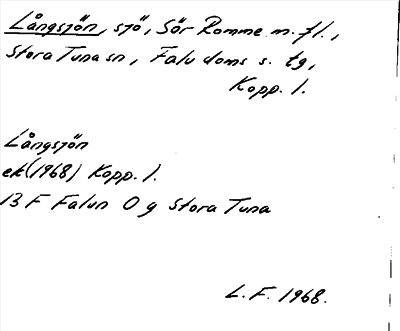 Långsjön, sjö, Sör Romme m. fl.,
Stora Tuna sn, Falu doms s. tg,
Kopp. l.
Långsjön
ek (1968) Kopp. l.
13 F Falun 0 g Stora Tuna
L. F. 1968.